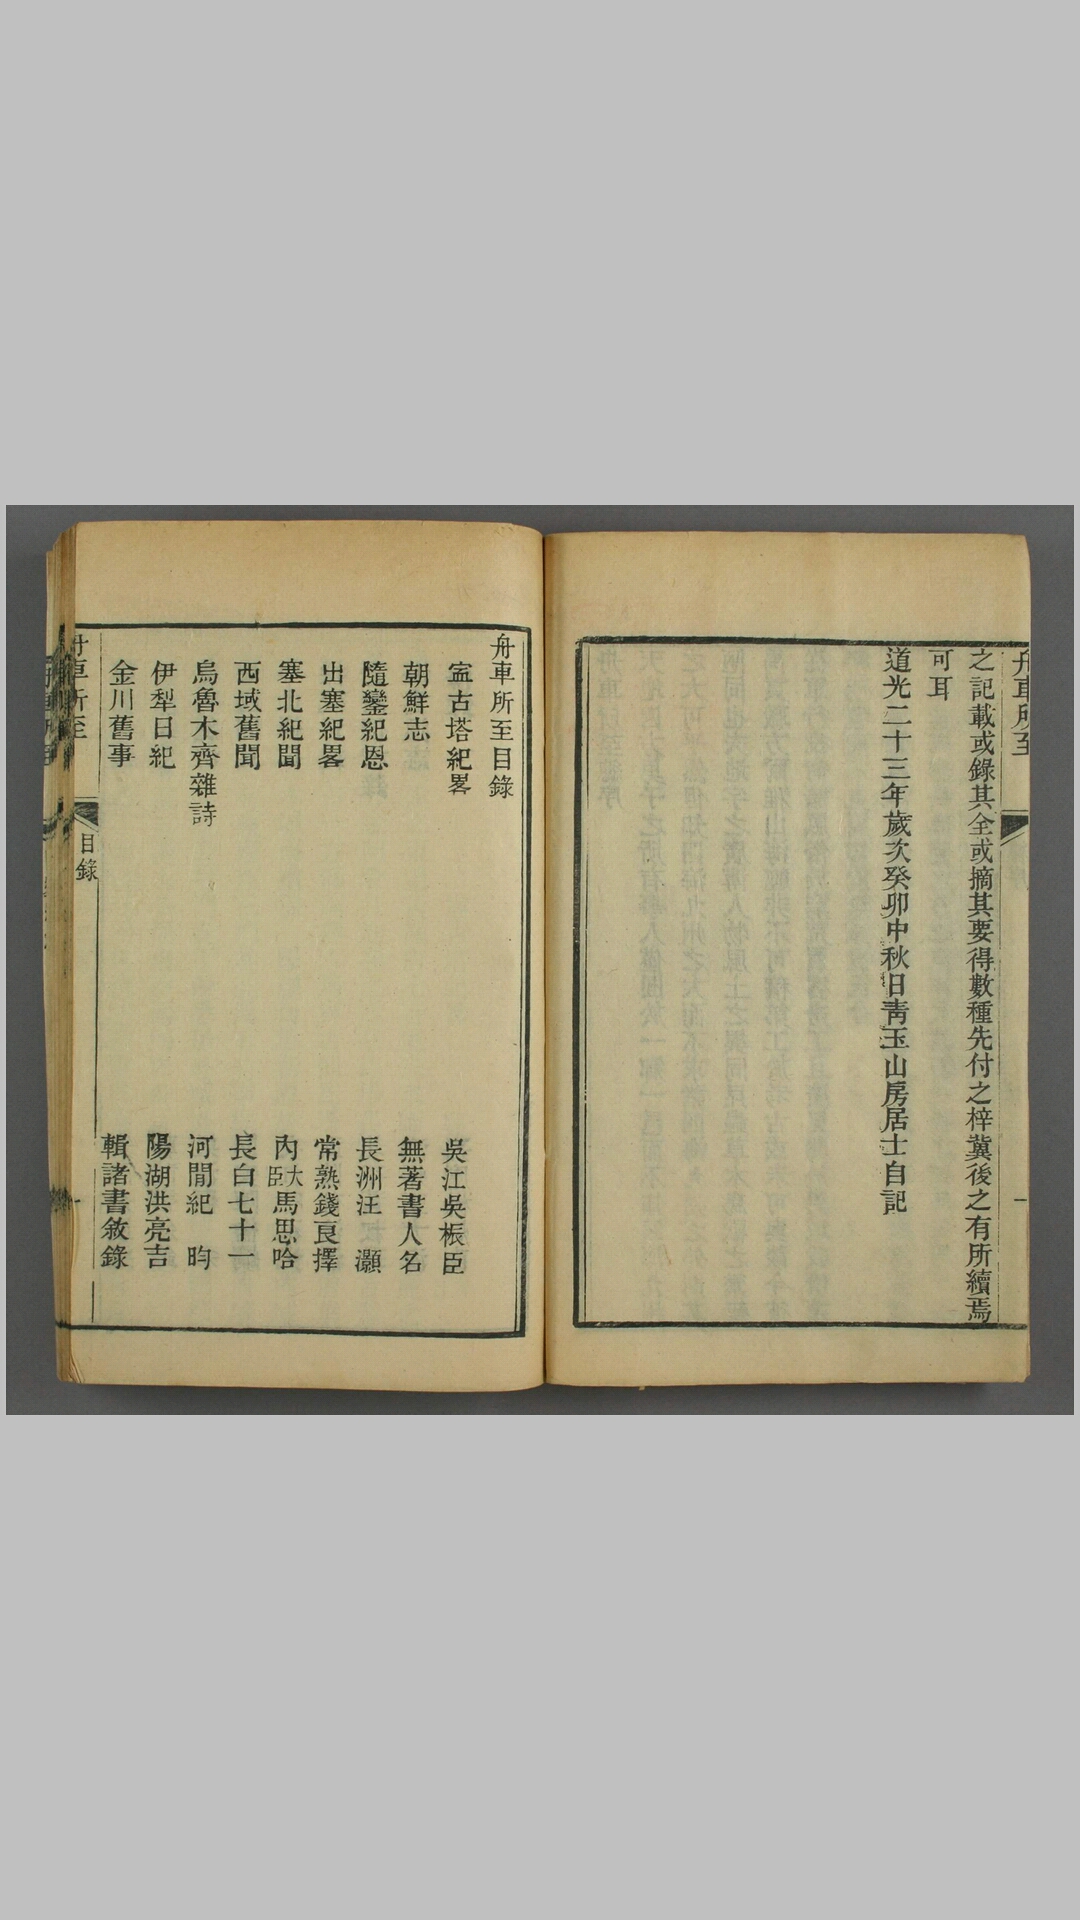 舟車所至
一
之記載或錄其全或摘其要得數種先付之梓冀後之有所續焉
可耳
道光二十三年歲次癸卯中秋日青玉山房居士自記
舟車所至目錄
寍古塔紀畧 吳江吳桭臣
朝鮮志 無著書人名
隨鑾紀恩 長洲汪灝
出塞紀畧 常熟錢良擇
塞北紀聞 內大臣馬思哈
西域舊聞 長白七十一
烏魯木齊雜詩 河閒紀昀
伊犁日紀 陽湖洪亮吉
金川舊事 輯諸書敘錄
舟車所至 目錄 一